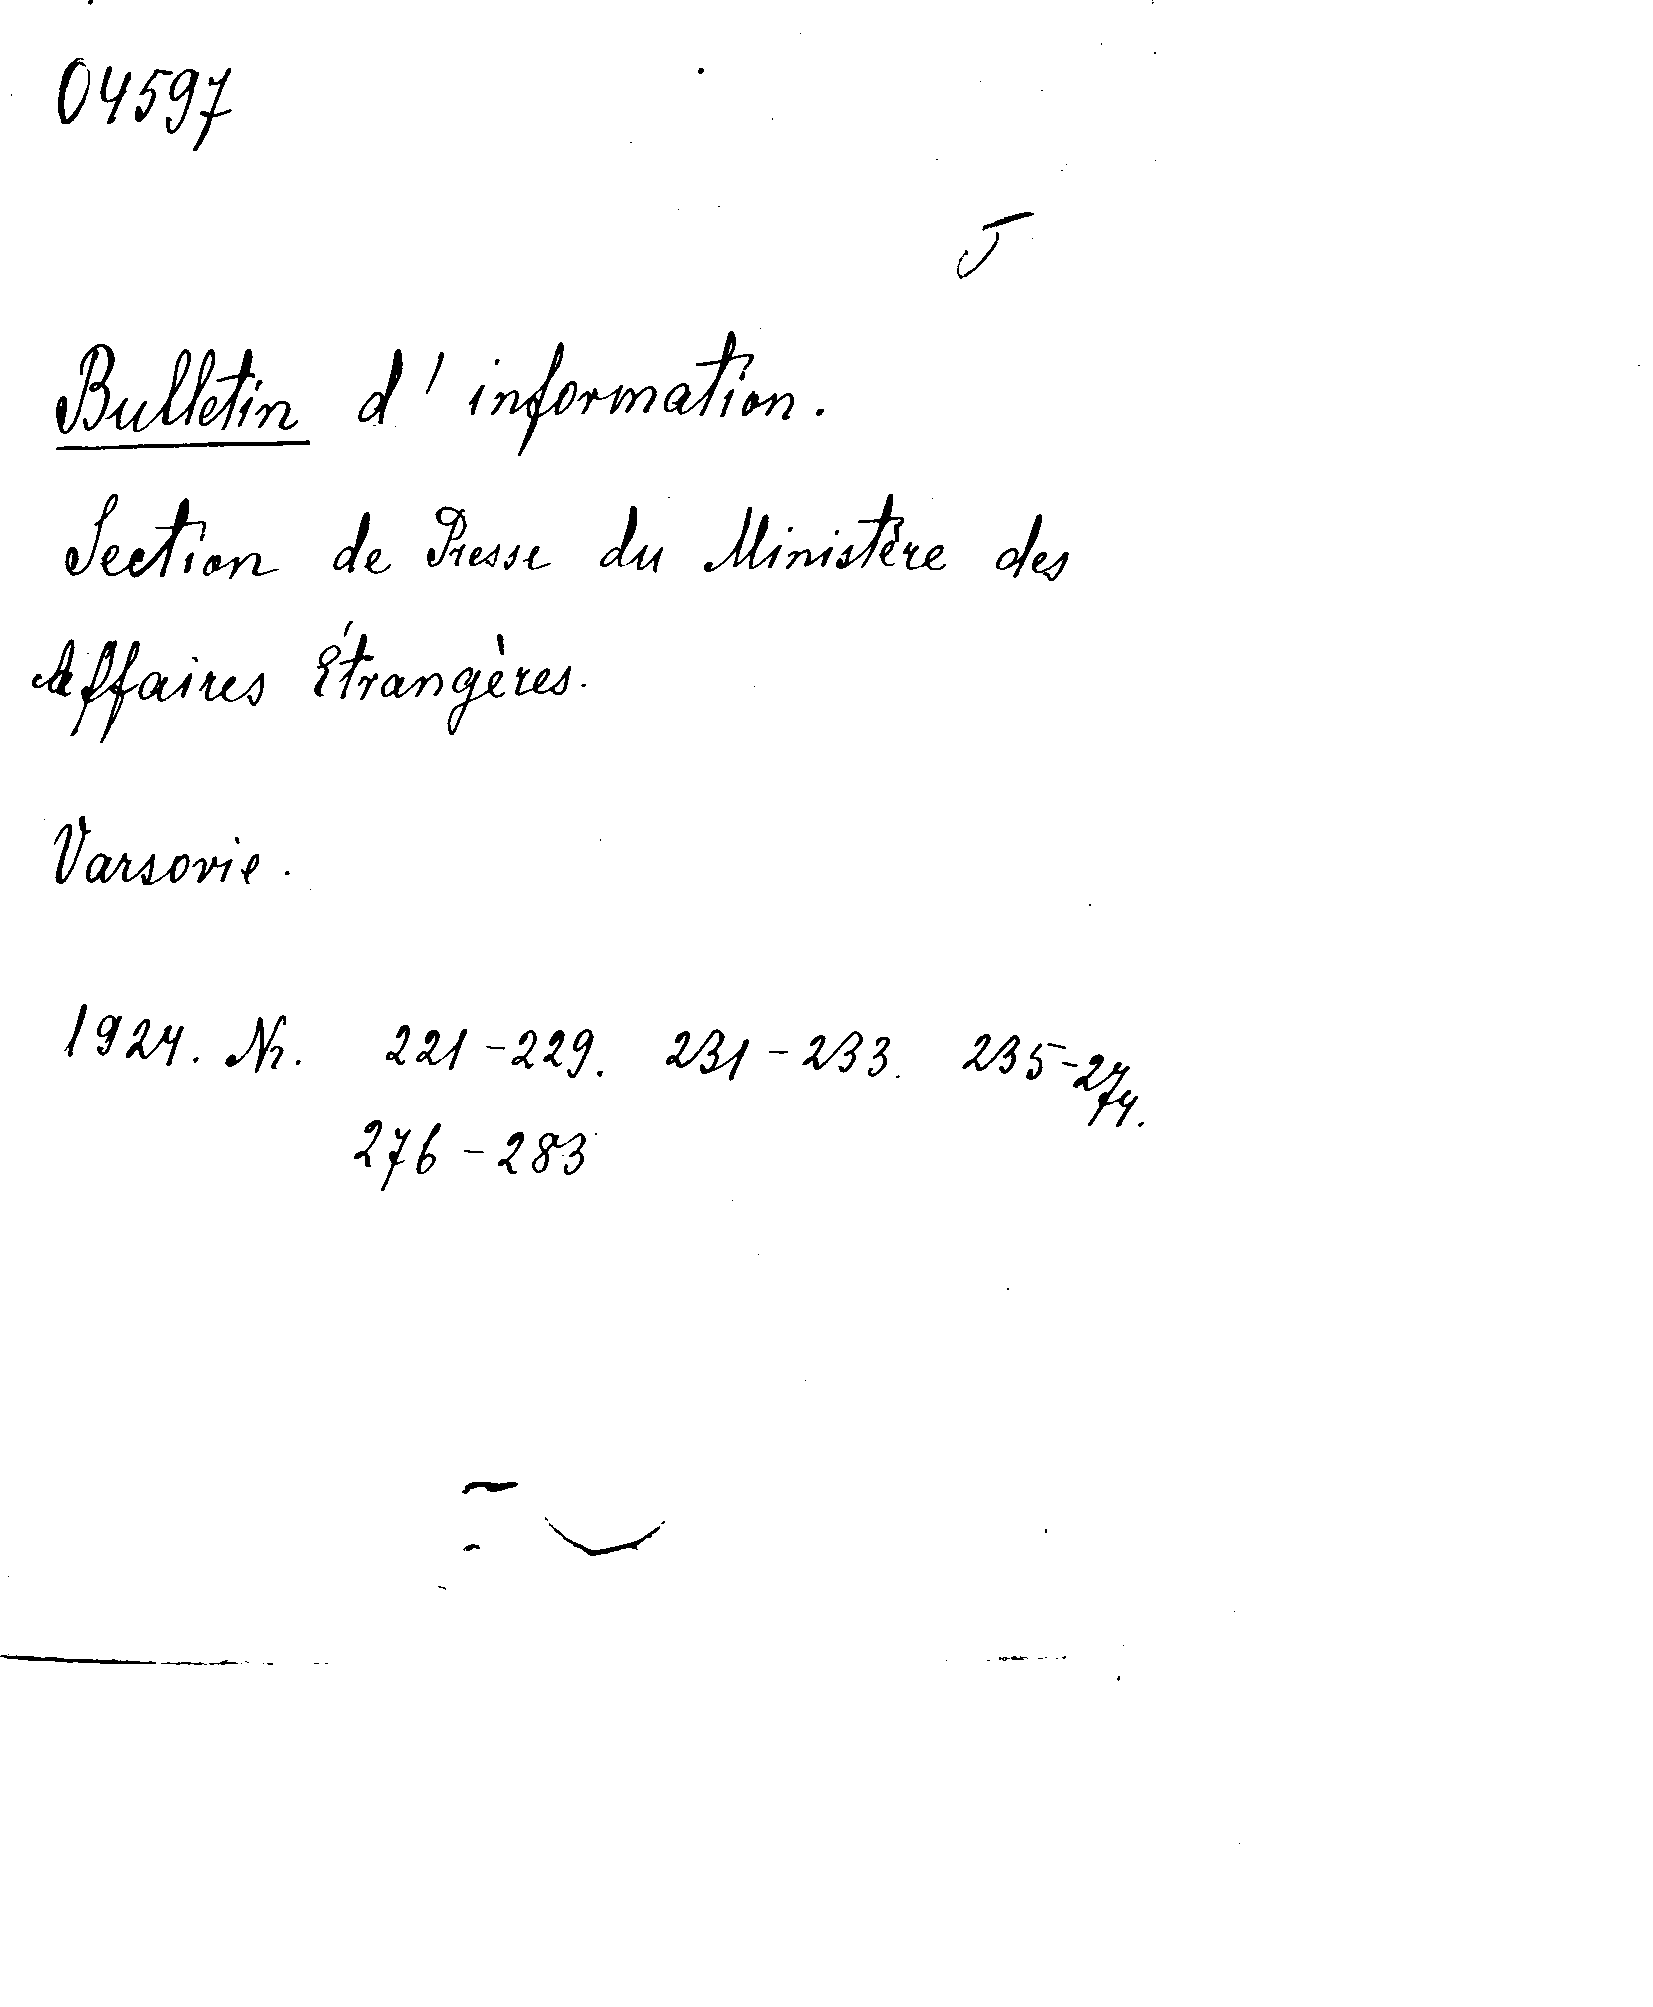 04597
J
Bulletin d'information.
Section de Presse du Ministère des
Affaires Étrangères.
Varsovie.
1924. Nr. 221-229. 231-233. 235-274.
276-283